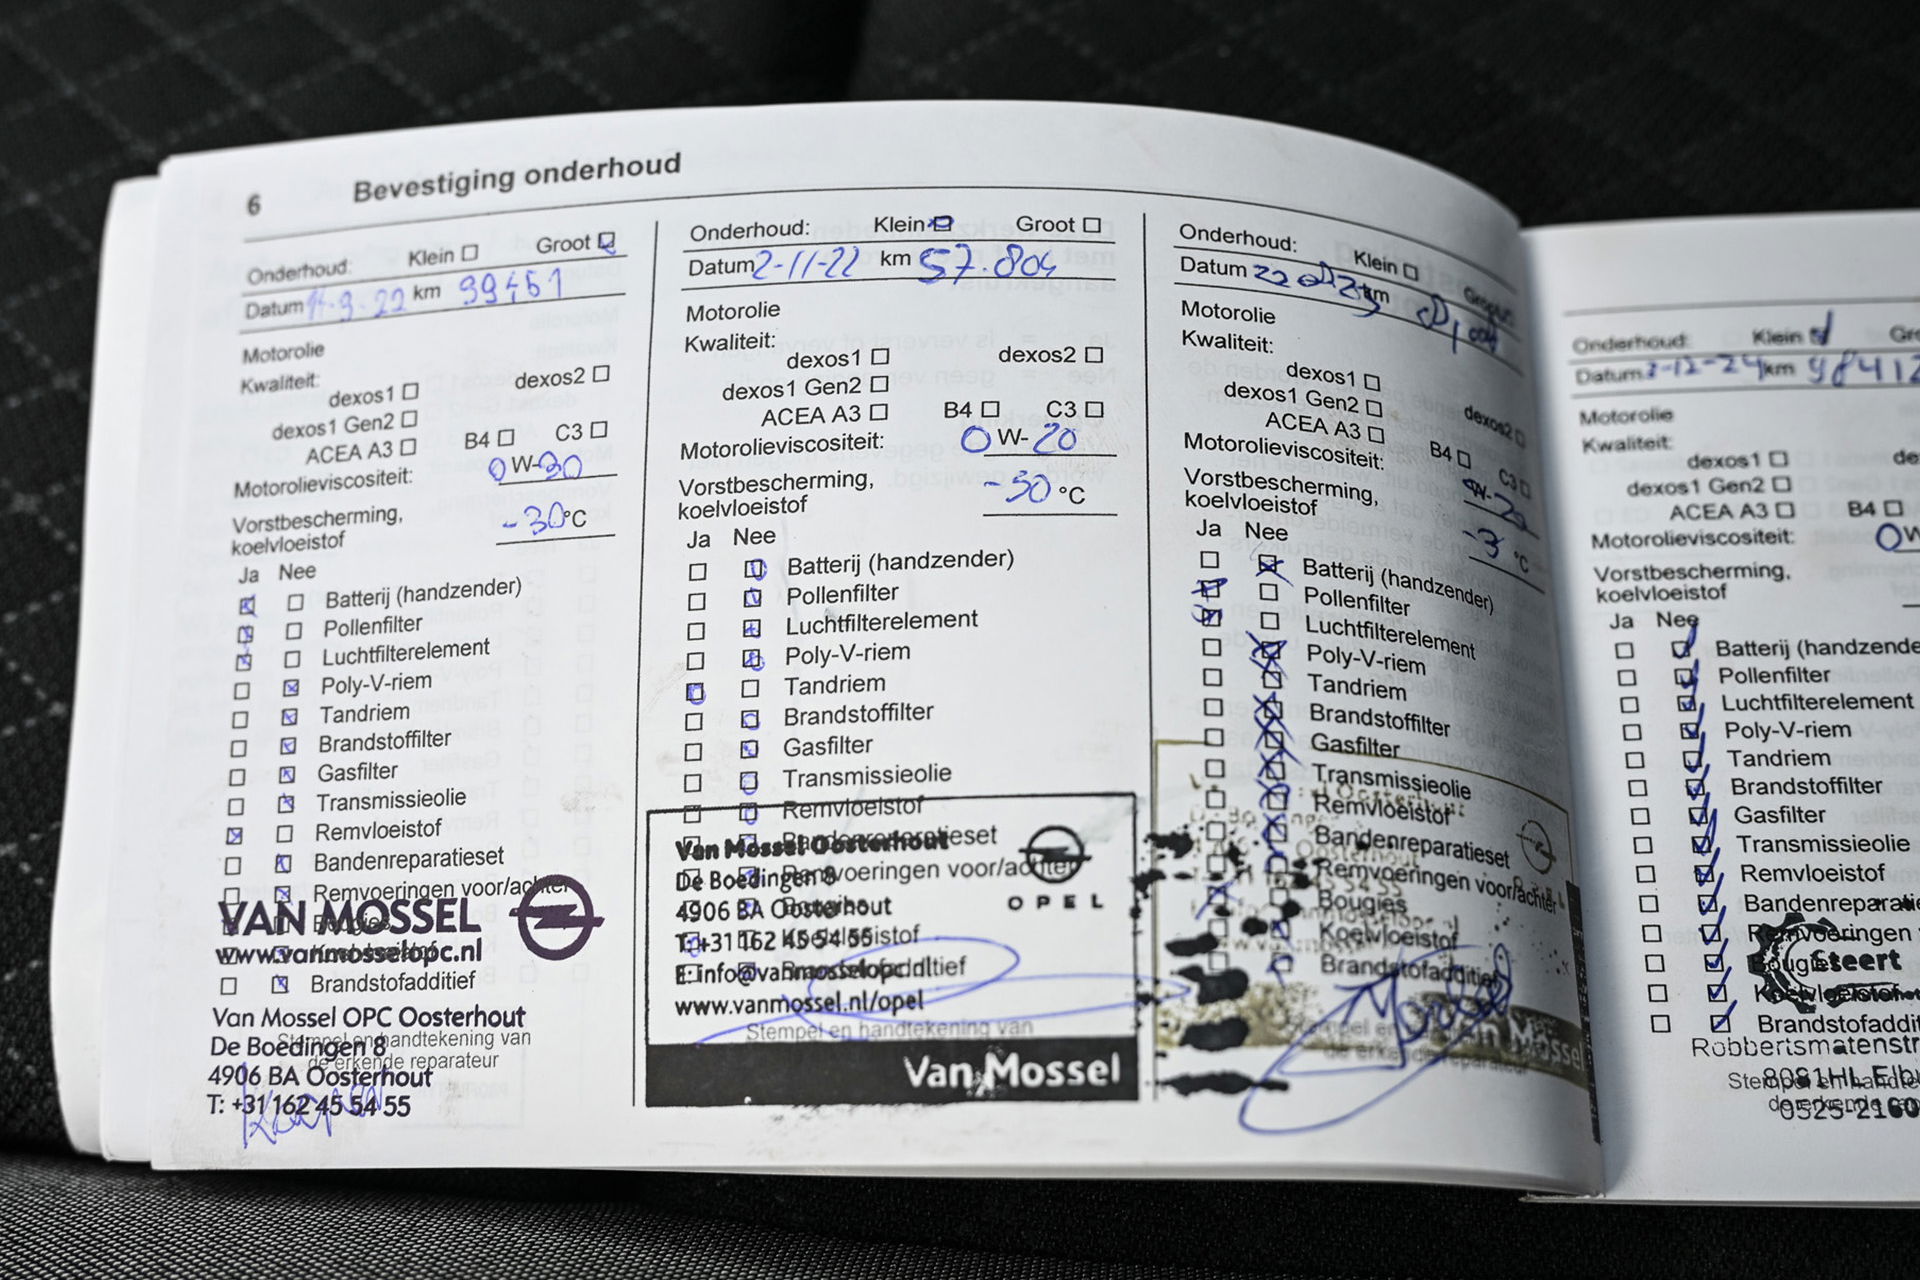 6 Bevestiging onderhoud
Onderhoud: Klein Groot
Datum km 99461
Motorolie
Kwaliteit:
dexos1 dexos2
dexos1 Gen2
ACEA A3 B4 C3
Motorolieviscositeit: 0 W-30
Vorstbescherming,
koelvloeistof -30 °C
Ja Nee
Batterij (handzender)
Pollenfilter
Luchtfilterelement
Poly-V-riem
Tandriem
Brandstoffilter
Gasfilter
Transmissieolie
Remvloeistof
Bandenreparatieset
Remvoeringen voor/achter
Bougies
VAN MOSSEL
Koelvloeistof
www.vanmosselopc.nl
Brandstofadditief
Van Mossel OPC Oosterhout
Stempel en handtekening van
De Boedingen 8
de erkende reparateur
4906 BA Oosterhout
T: +31 162 45 54 55
Onderhoud: Klein Groot
Datum 2-11-22 km 57.804
Motorolie
Kwaliteit:
dexos1 dexos2
dexos1 Gen2
ACEA A3 B4 C3
Motorolieviscositeit: 0 W-20
Vorstbescherming,
koelvloeistof -30 °C
Ja Nee
Batterij (handzender)
Pollenfilter
Luchtfilterelement
Poly-V-riem
Tandriem
Brandstoffilter
Gasfilter
Transmissieolie
Remvloeistof
Bandenreparatieset
Van Mossel Oosterhout
Remvoeringen voor/achter
De Boedingen 8
OPEL
Bougies
4906 BA Oosterhout
Koelvloeistof
T: +31 162 45 54 55
Brandstofadditief
E: info@vanmosselopc.nl
www.vanmossel.nl/opel
Stempel en handtekening van
Van Mossel
Onderhoud: Klein Groot
Datum km
Motorolie
Kwaliteit:
dexos1 dexos2
dexos1 Gen2
ACEA A3 B4 C3
Motorolieviscositeit: W-20
Vorstbescherming,
koelvloeistof -3 °C
Ja Nee
Batterij (handzender)
Pollenfilter
Luchtfilterelement
Poly-V-riem
Tandriem
Brandstoffilter
Gasfilter
Transmissieolie
Remvloeistof
Bandenreparatieset
Remvoeringen voor/achter
Bougies
Koelvloeistof
Brandstofadditief
Stempel en
de erkende reparateur
Van Mossel
Onderhoud: Klein Gro
Datum 3-12-24 km 98412
Motorolie
Kwaliteit:
dexos1 de
dexos1 Gen2
ACEA A3 B4
Motorolieviscositeit: 0 W
Vorstbescherming,
koelvloeistof
Ja Nee
Batterij (handzende
Pollenfilter
Luchtfilterelement
Poly-V-riem
Tandriem
Brandstoffilter
Gasfilter
Transmissieolie
Remvloeistof
Bandenreparatie
Remvoeringen
Bougies
Steert
Koelvloeistof
Brandstofaddit
Robbertsmatenstr
Stempel en handte
8081HL Elbu
de erkende
0525-2160